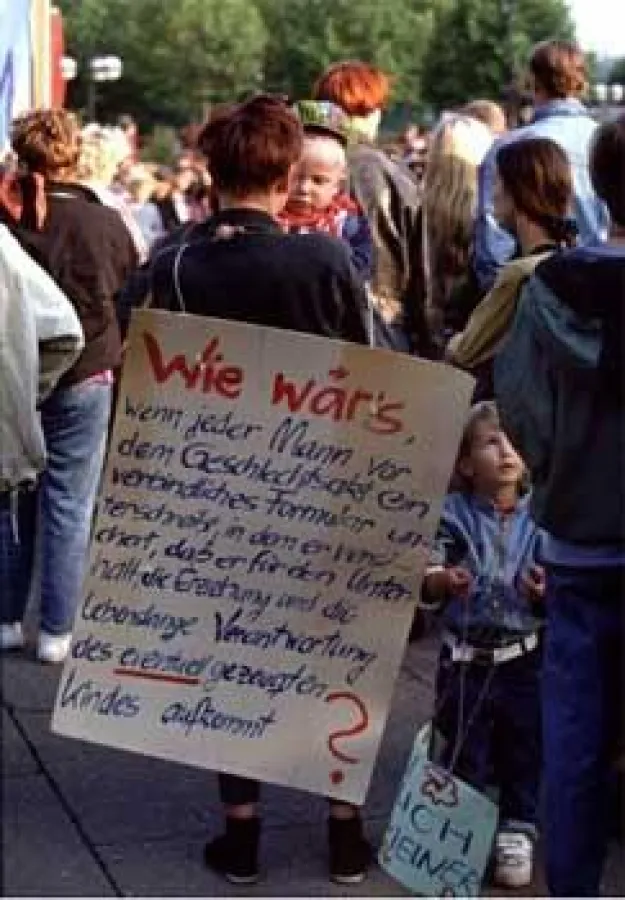 Wie wär's,
wenn jeder Mann vor
dem Geschlechtsakt ein
verbindliches Formular un-
terschreibt, in dem er versi-
chert, daß er für den Unter-
halt, die Erziehung und die
lebenslange Verantwortung
des eventuel gezeugten
Kindes aufkommt ?
ICH